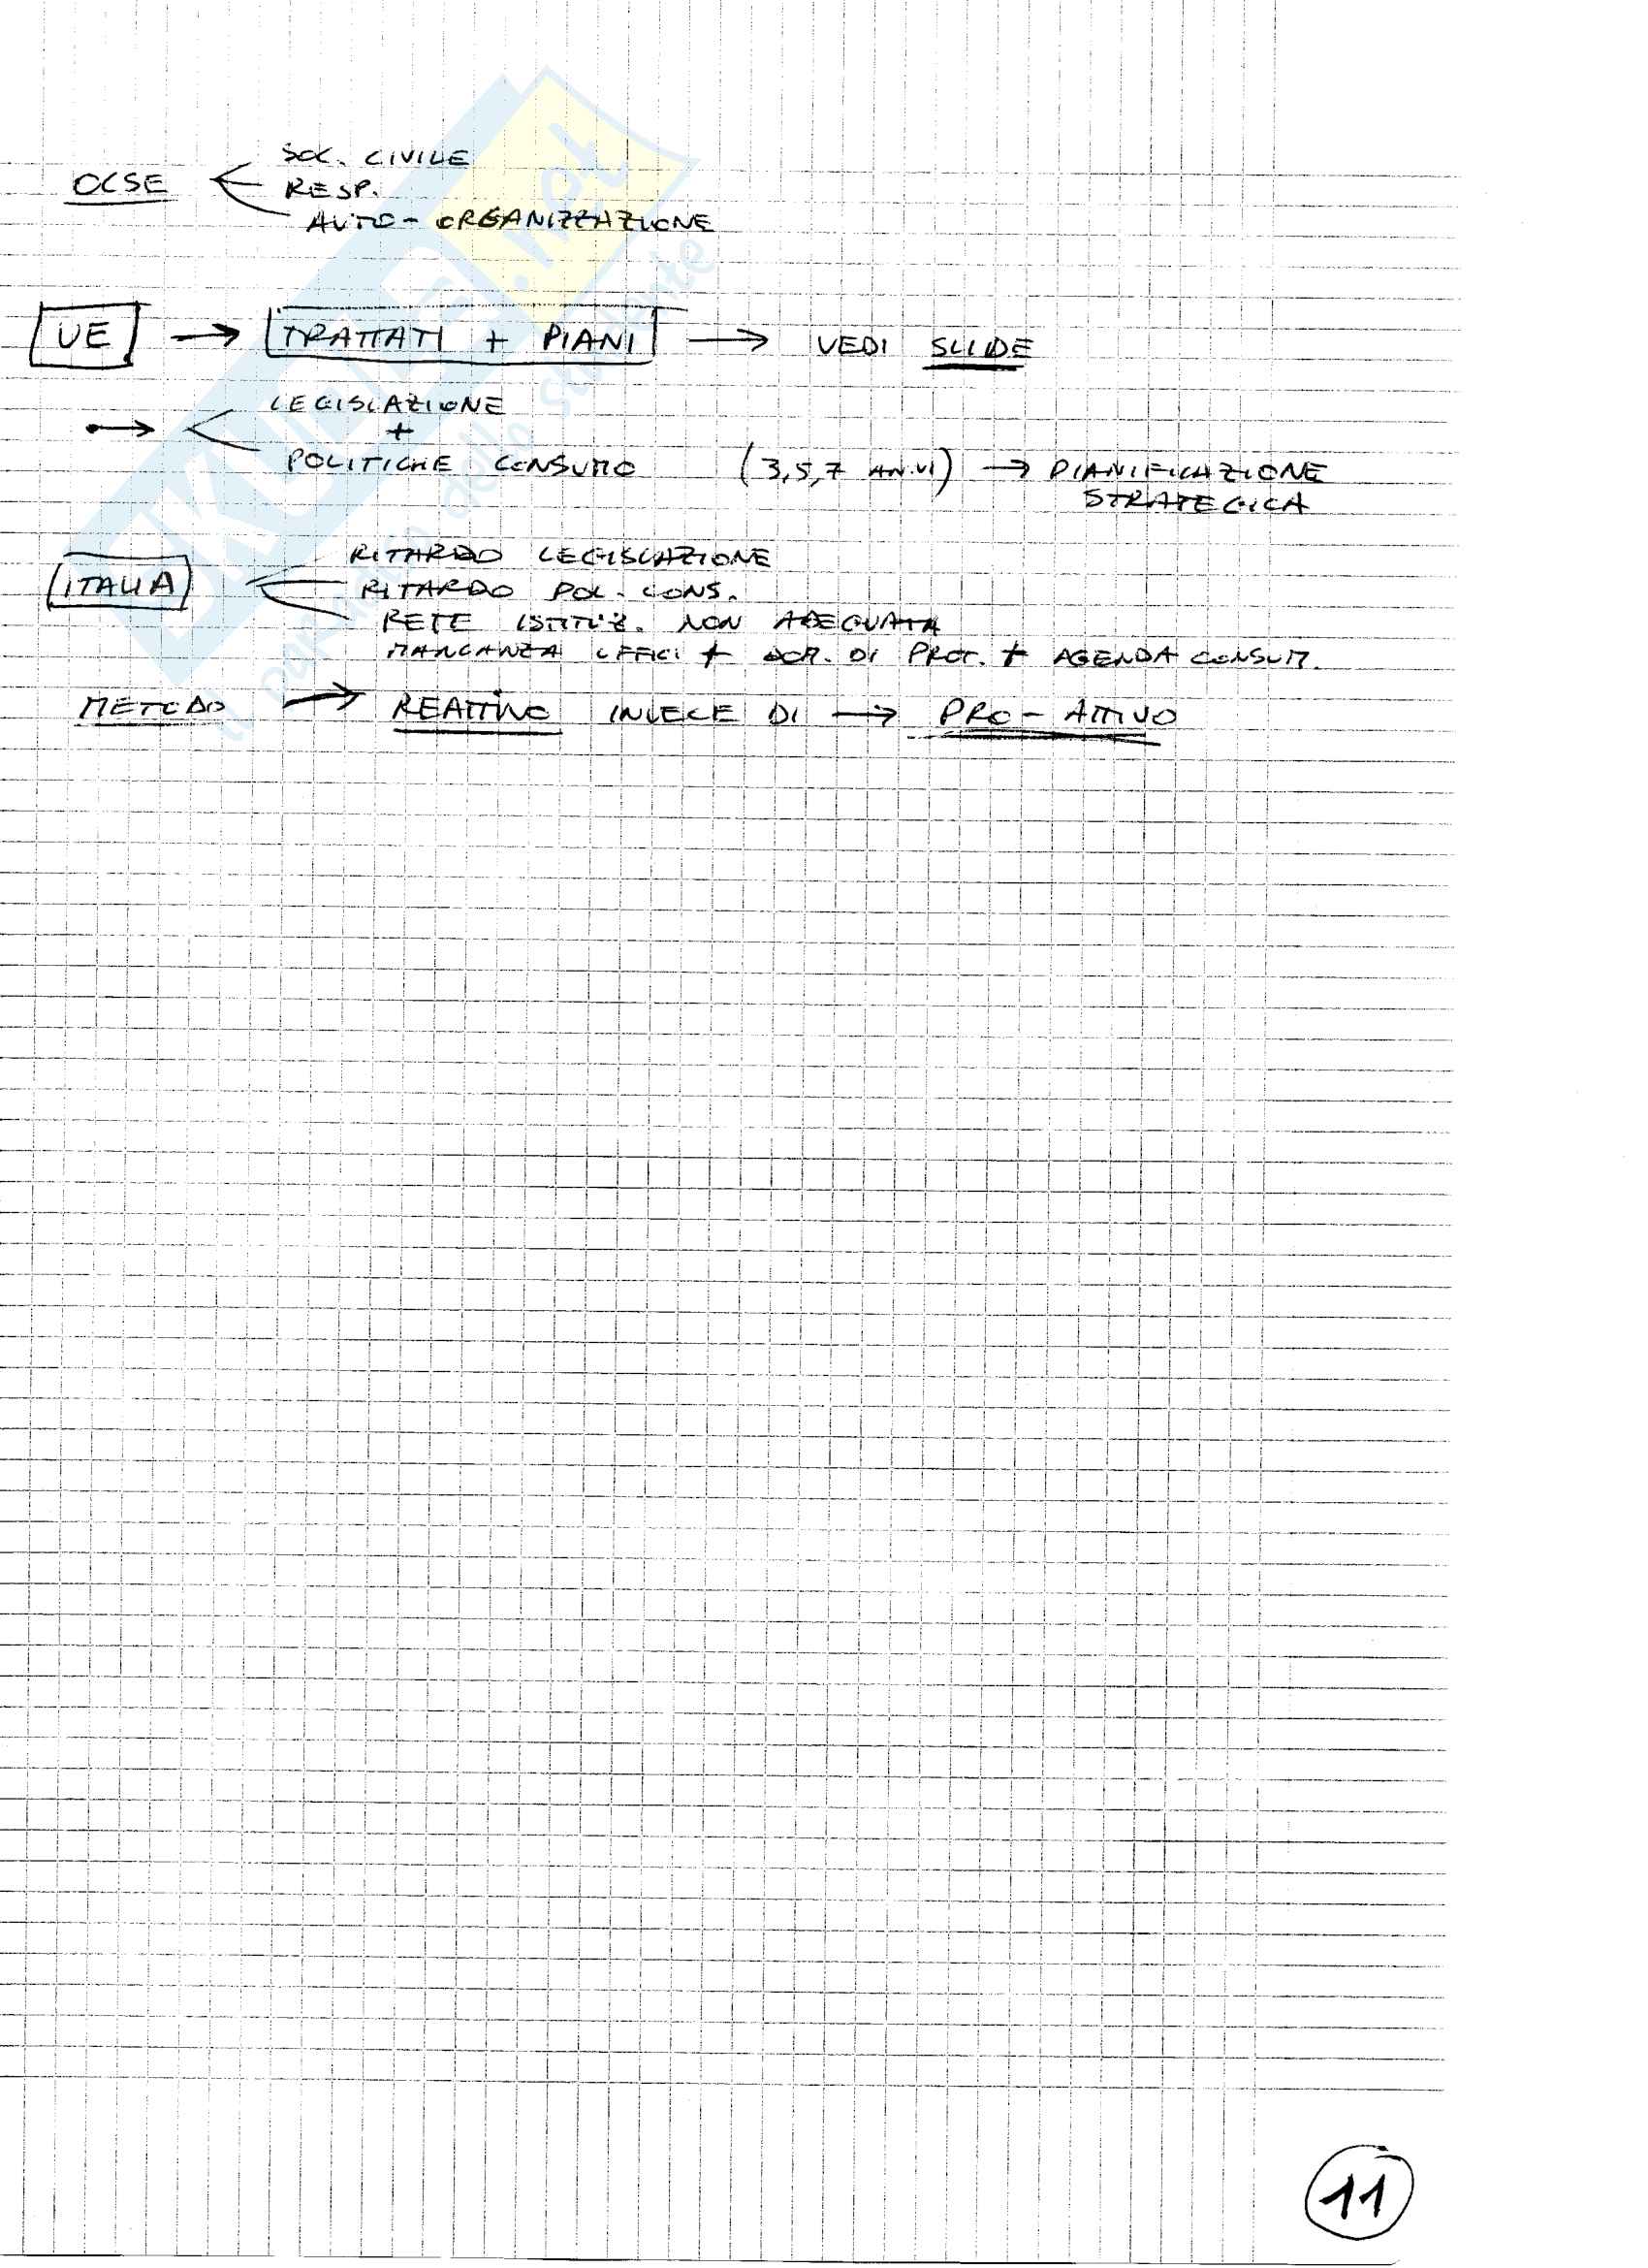 OCSE
SOC. CIVILE
RESP.
AUTO-ORGANIZZAZIONE
UE → TRATTATI + PIANI → VEDI SLIDE
→ LEGISLAZIONE
+
POLITICHE CONSUMO (3,5,7 ANNI) → PIANIFICAZIONE
STRATEGICA
ITALIA
RITARDO LEGISLAZIONE
RITARDO POL. CONS.
RETE ISTITUZ. NON ADEGUATA
MANCANZA UFFICI + DI PROT. + AGENDA CONSUM.
METODO → REATTIVO INVECE DI → PRO-ATTIVO
11